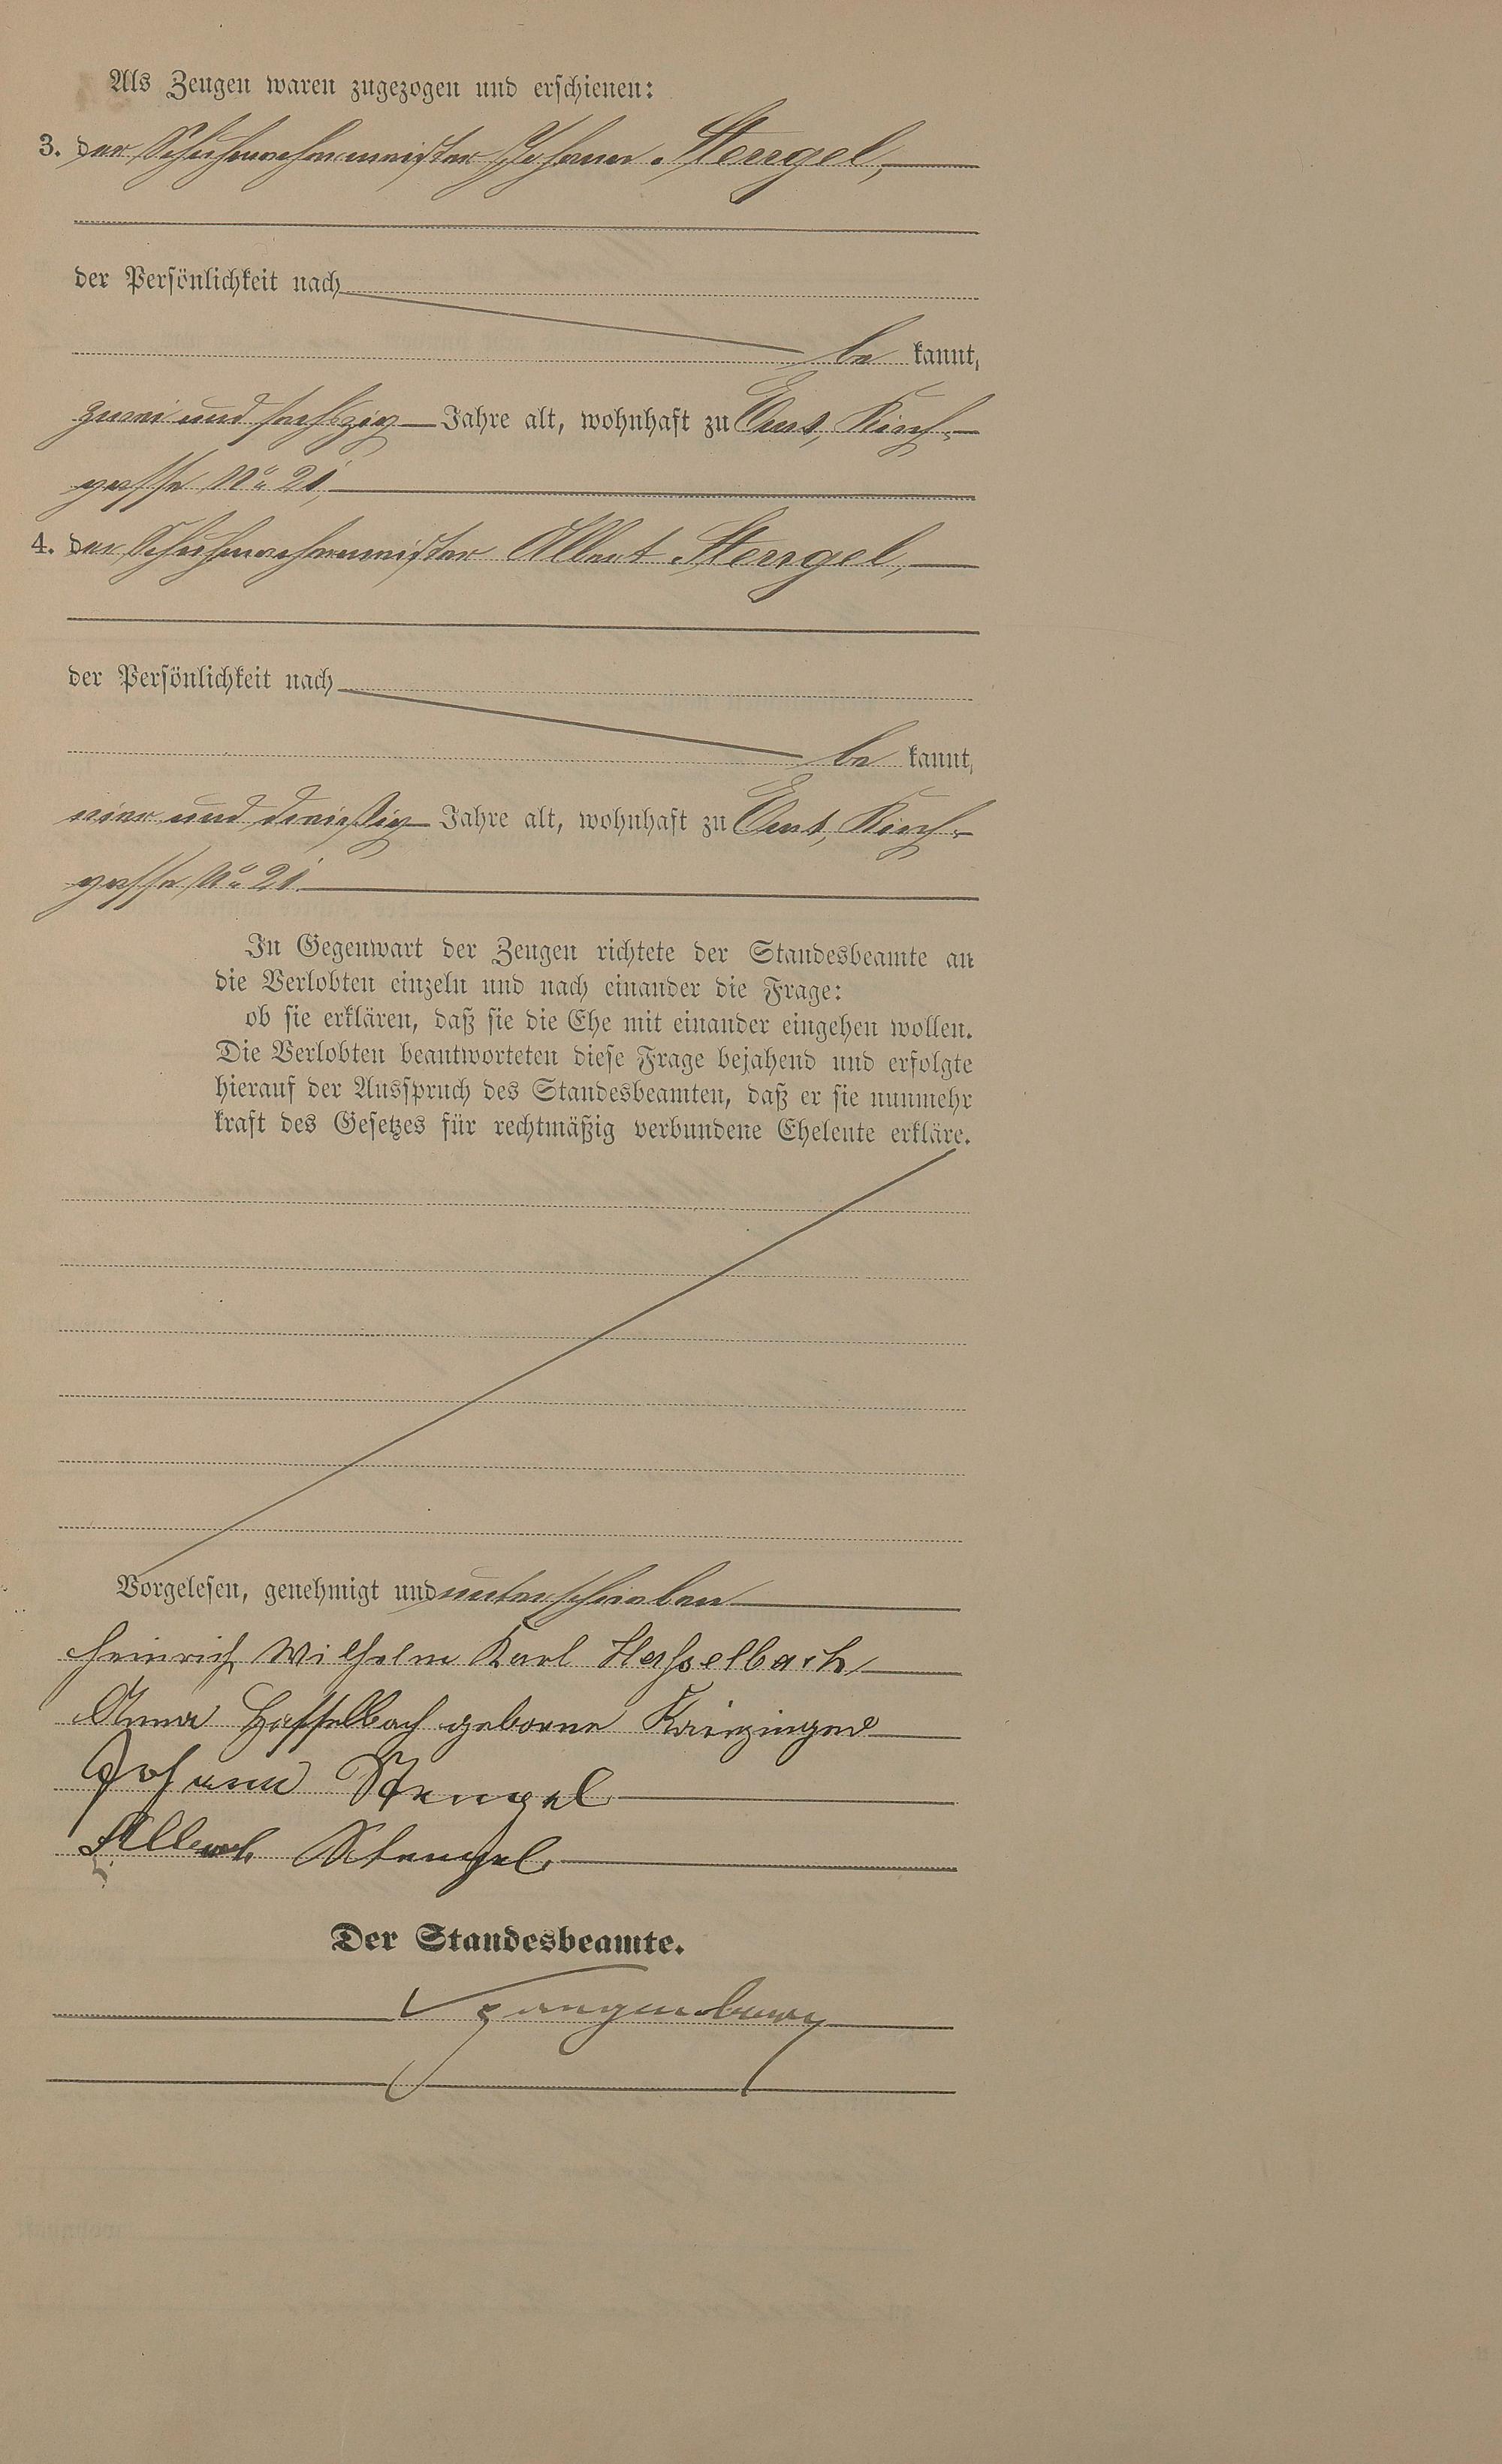 Als Zeugen waren zugezogen und erschienen:
3. der Schuhmachermeister Johann Stengel,
der Persönlichkeit nach
be kannt,
zwei und sechszig Jahre alt, wohnhaft zu Ems, Kirch-
gasse No 21,
4. der Schuhmachermeister Albert Stengel,
der Persönlichkeit nach
be kannt,
vier und dreißig Jahre alt, wohnhaft zu Ems, Kirch-
gasse No 21.
In Gegenwart der Zeugen richtete der Standesbeamte an
die Verlobten einzeln und nach einander die Frage:
ob sie erklären, daß sie die Ehe mit einander eingehen wollen.
Die Verlobten beantworteten diese Frage bejahend und erfolgte
hierauf der Ausspruch des Standesbeamten, daß er sie nunmehr
kraft des Gesetzes für rechtmäßig verbundene Eheleute erkläre.
Vorgelesen, genehmigt und unterschrieben
Heinrich Wilhelm Karl Hasselbach
Anna Hasselbach geborne
Johann Stengel
Albert Stengel
Der Standesbeamte.
Spangenberg